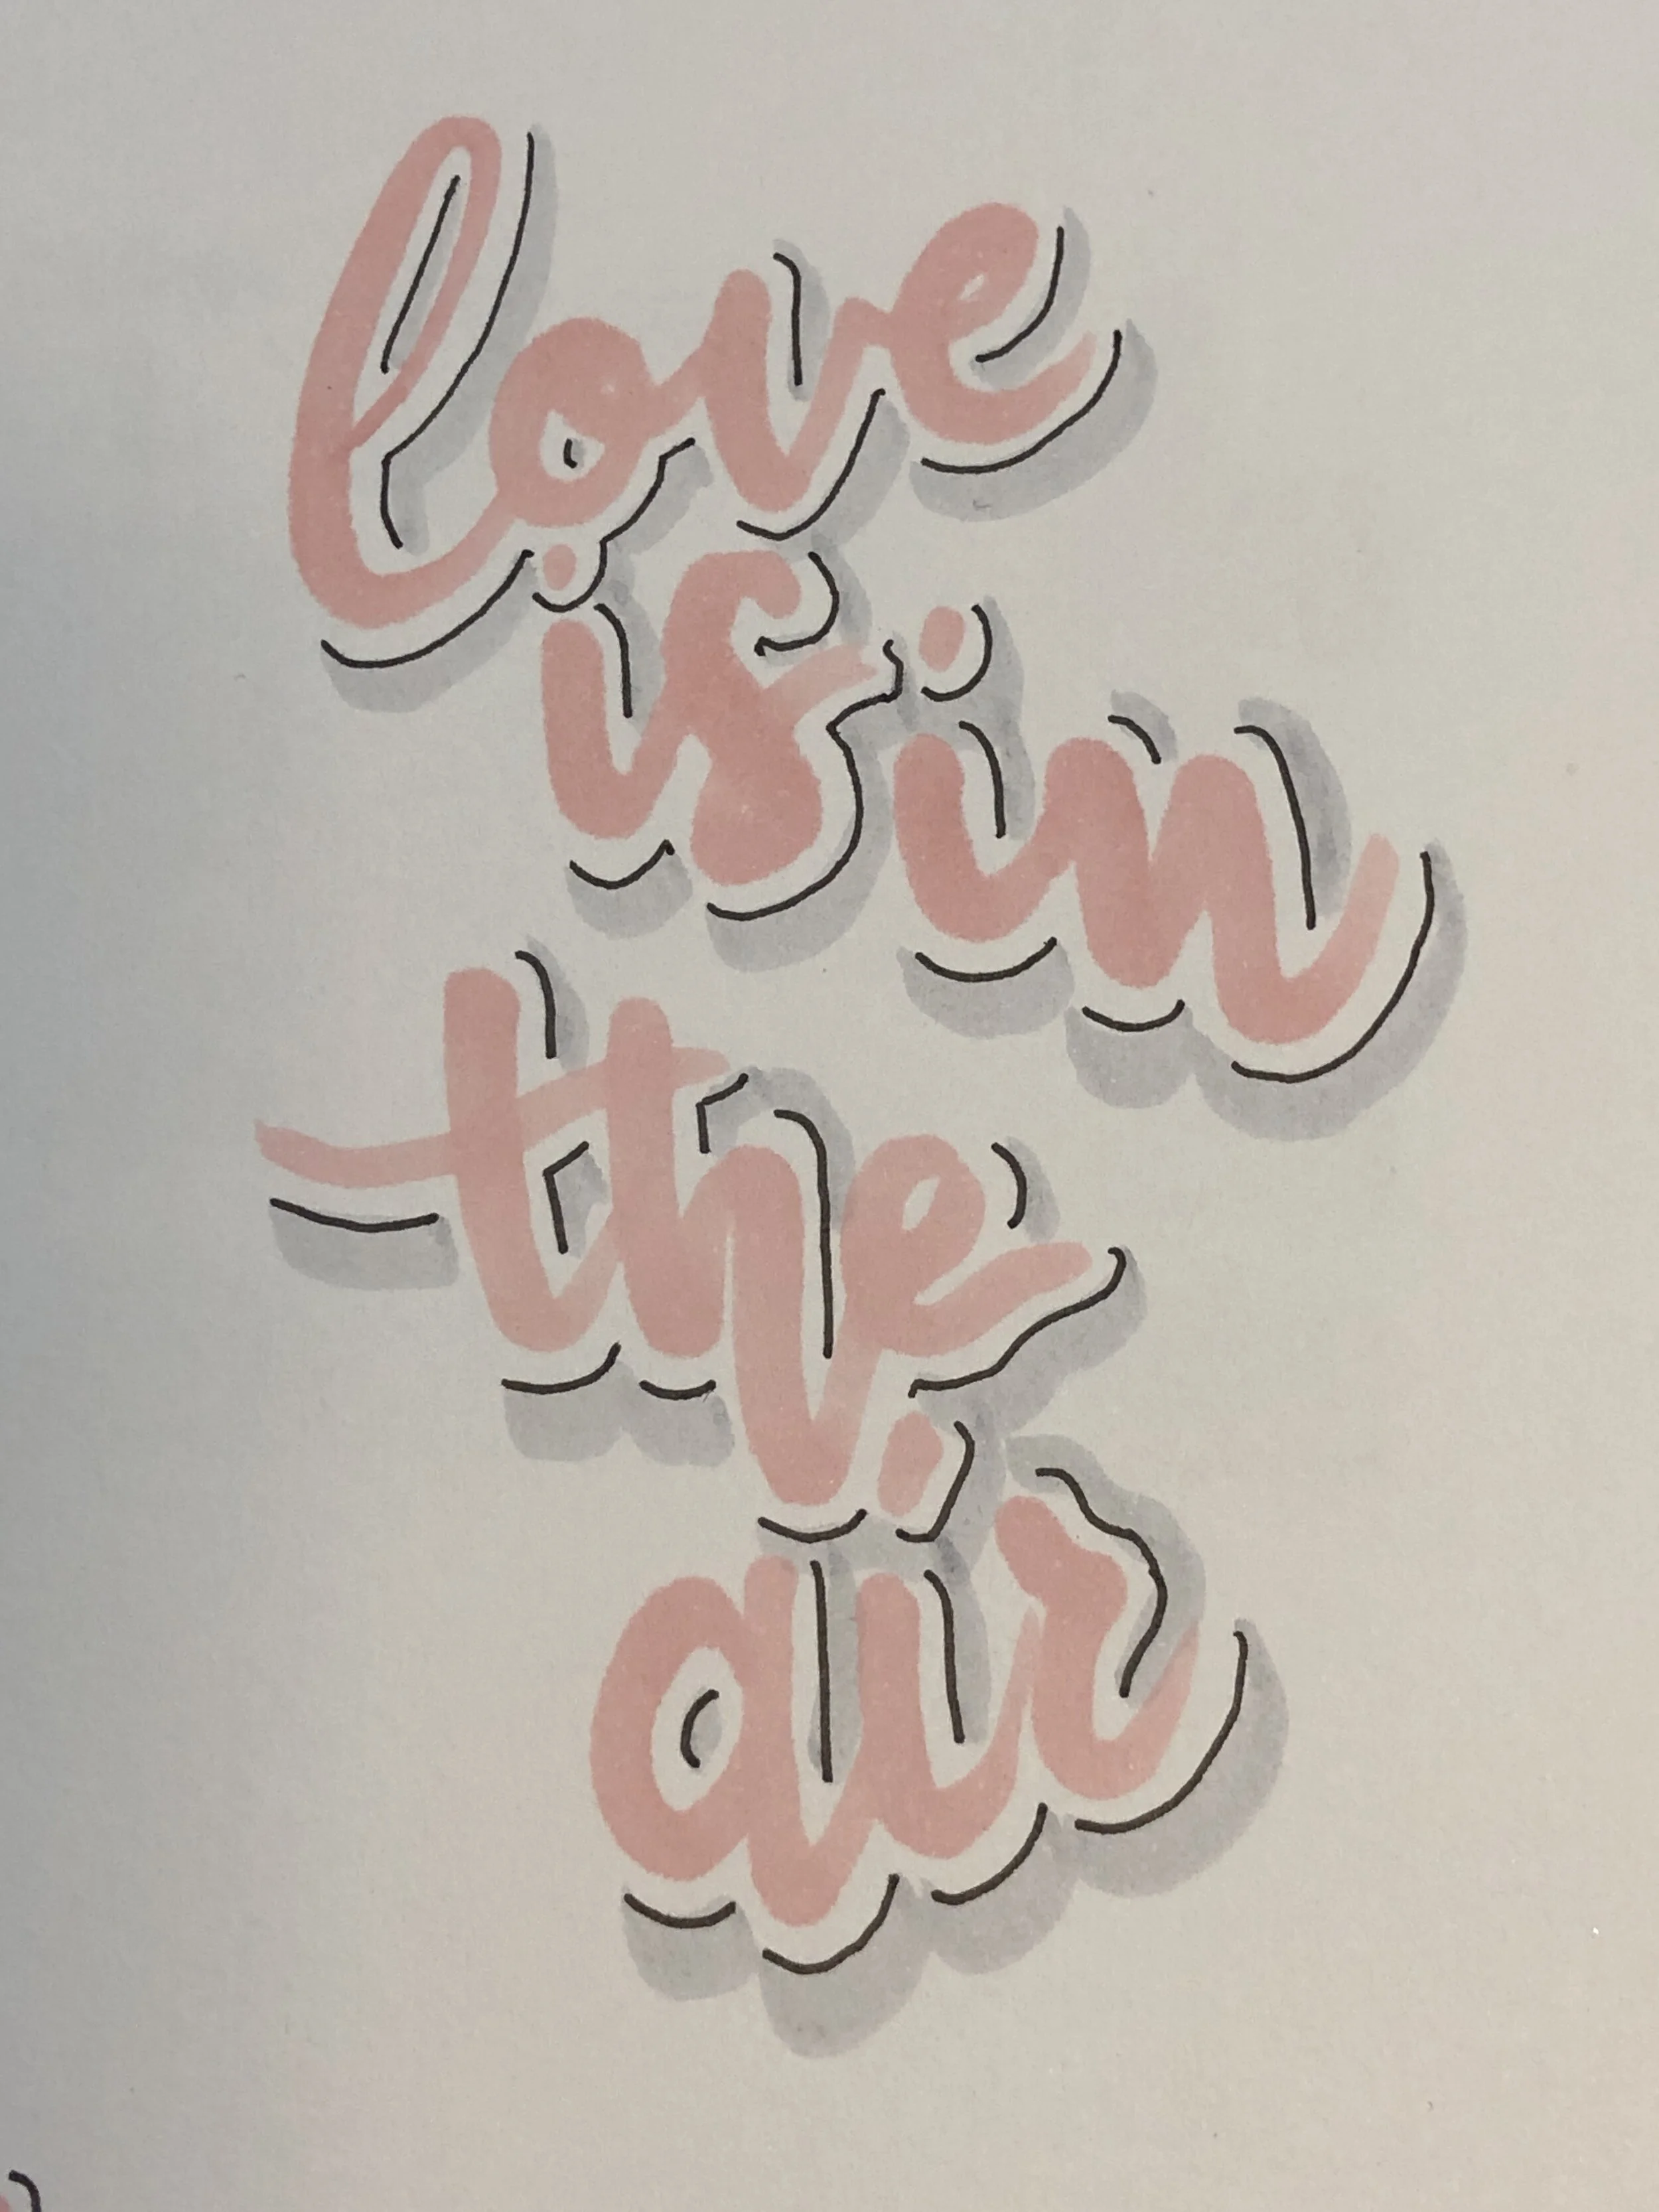 love
is in
the
air